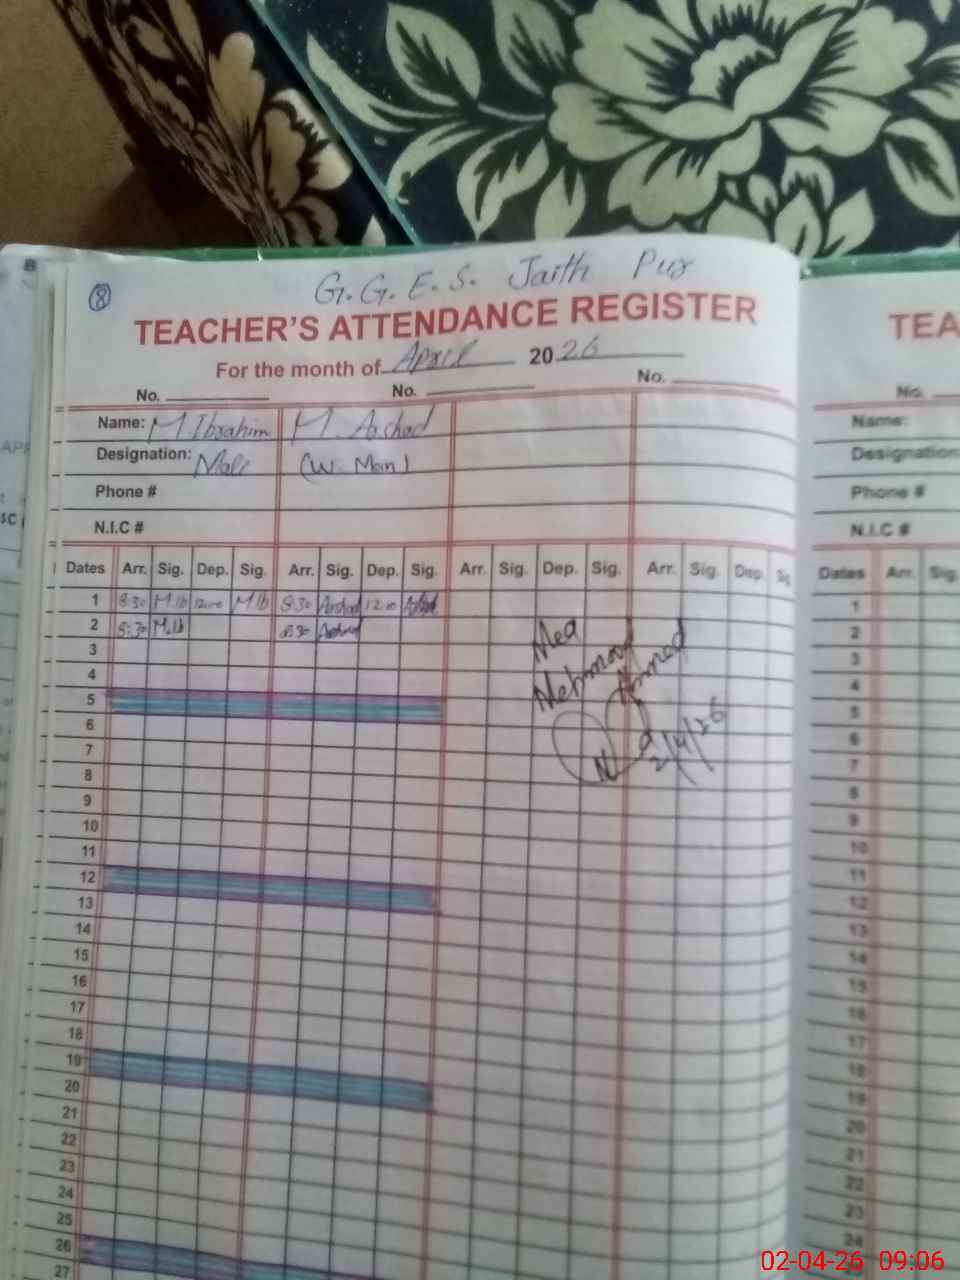 8
G.G.E.S. Jaith Pur
TEACHER'S ATTENDANCE REGISTER
For the month of April 2026
No. No. No.
Name: M. Ibrahim M. Arshad
Designation: Mali (W. Man)
Phone #
N.I.C #
Dates Arr. Sig. Dep. Sig. Arr. Sig. Dep. Sig. Arr. Sig. Dep. Sig. Arr. Sig. Dep. Sig
1 8:30 M.Ib 12:00 M.Ib 8:30 Arshad 12:00 Arshad
2 8:30 M.Ib 8:30 Arshad
3
4
5
6
7
8
9
10
11
12
13
14
15
16
17
18
19
20
21
22
23
24
25
26
27
Mea
Mehmood Ahmad
2/4/26
TEA
No.
Name:
Designation:
Phone #
N.I.C #
Dates Arr. Sig.
1
2
3
4
5
6
7
8
9
10
11
12
13
14
15
16
17
18
19
20
21
22
23
24
02-04-26 09:06